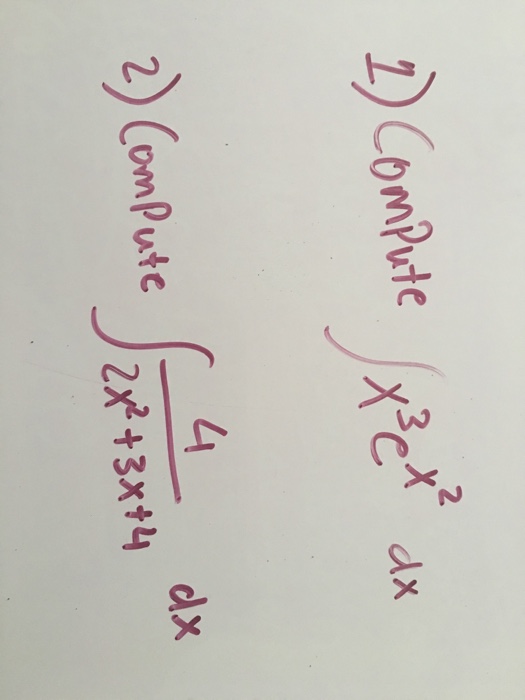 1) Compute ∫ x³e^x² dx
2) Compute ∫ 4/(2x²+3x+4) dx